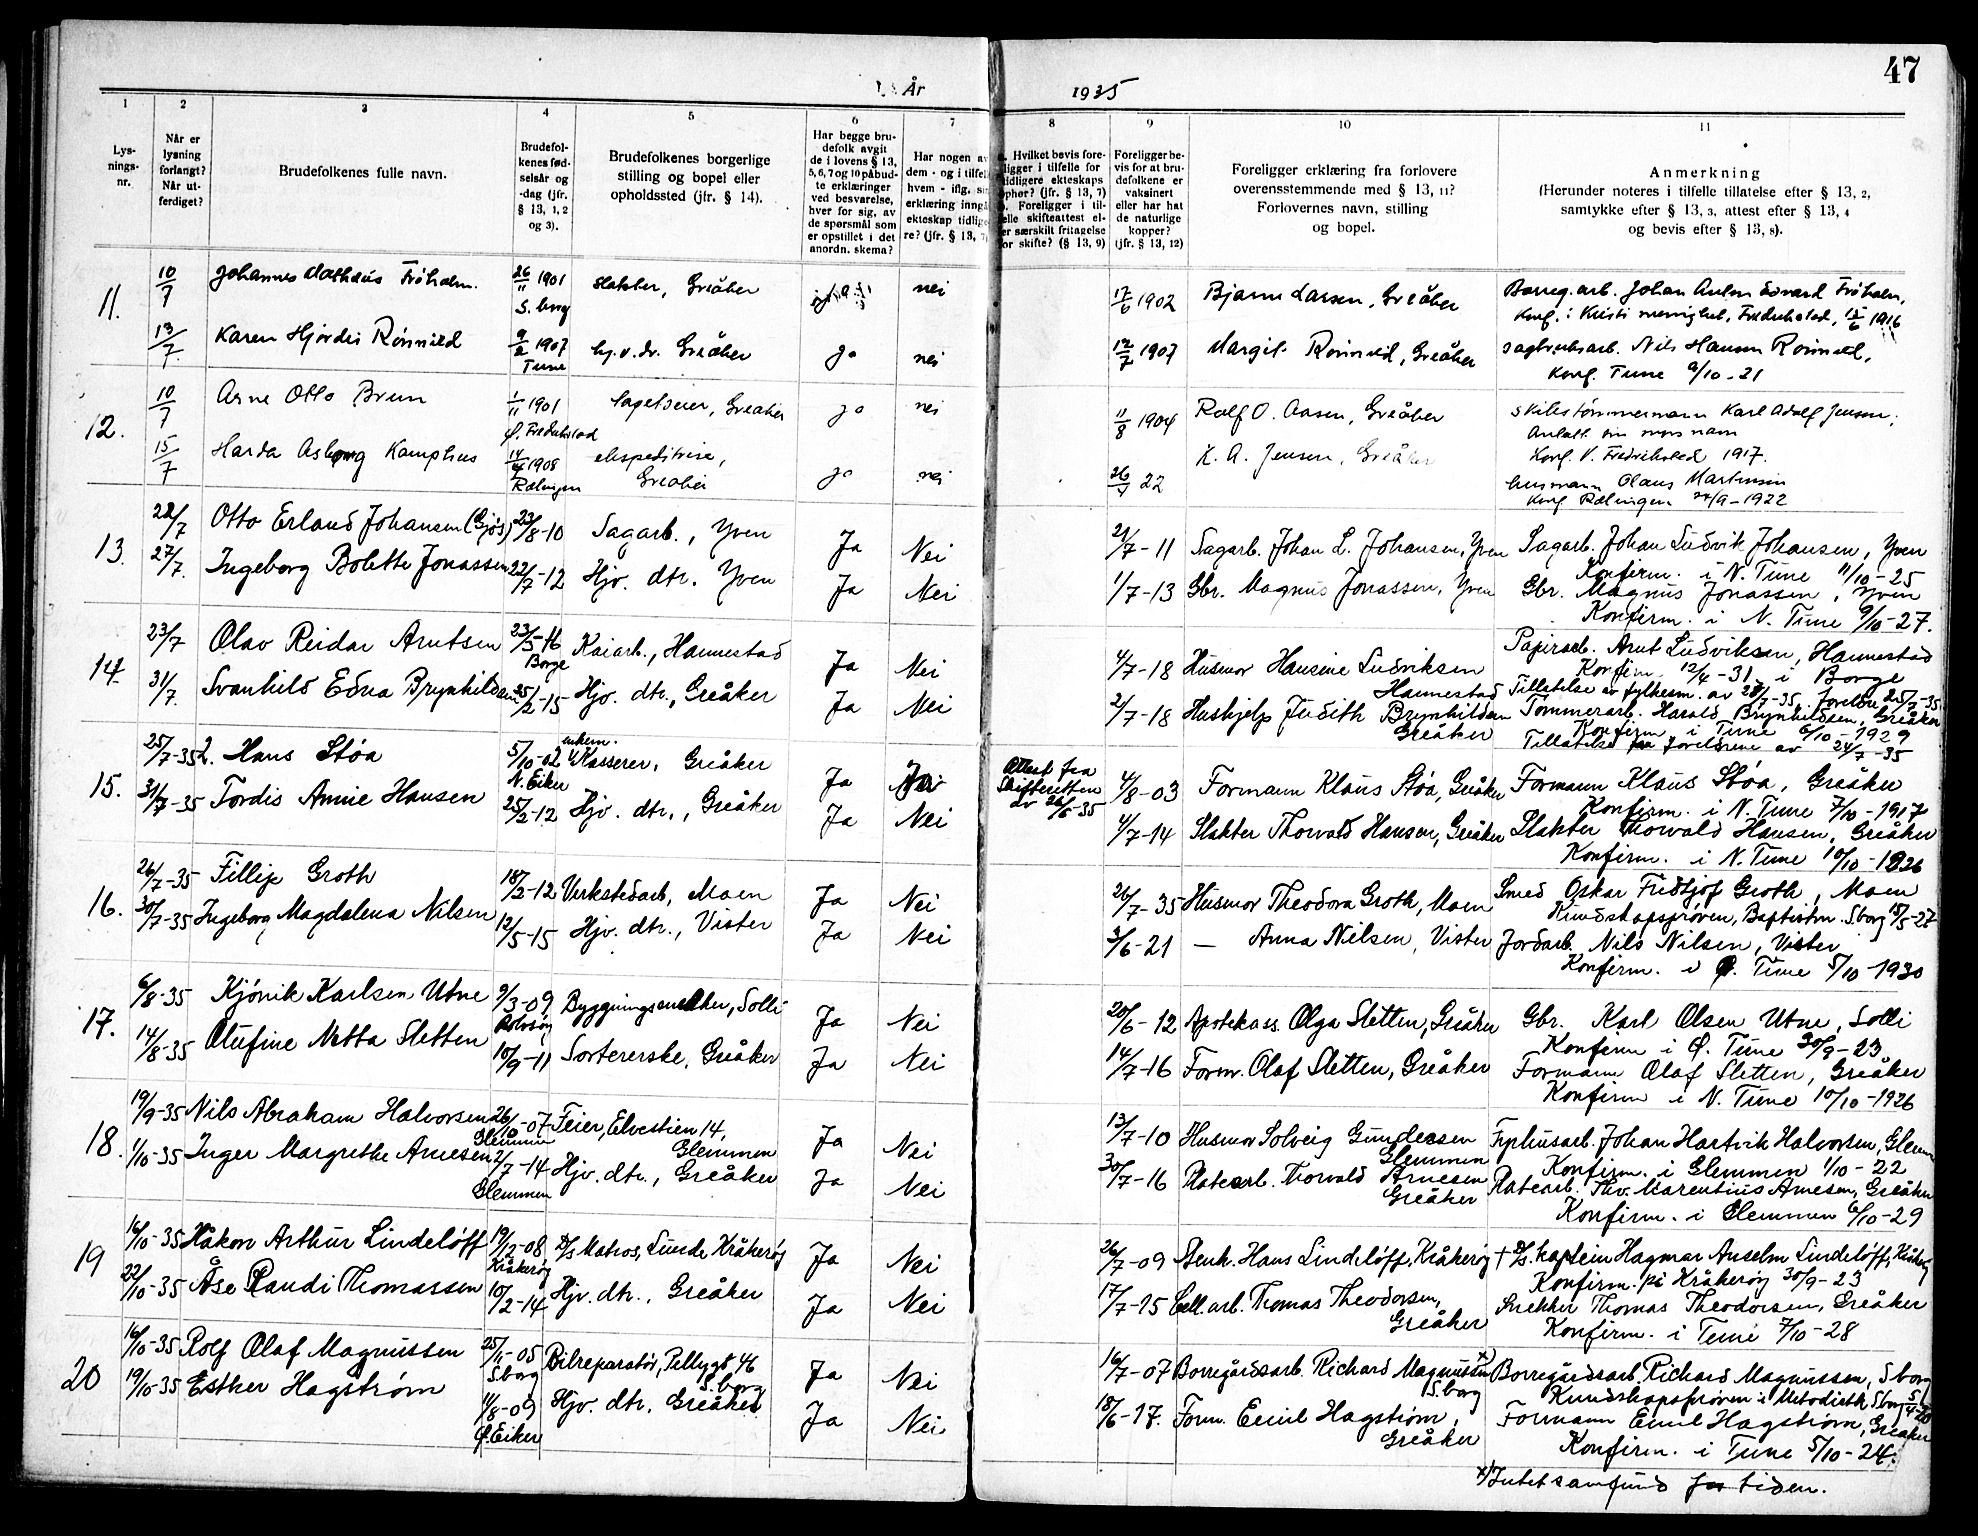 År 1935
47
1 2 3 4 5 6 7 8 9 10 11
Lysnings-nr.
Når er lysning forlangt? Når utferdiget?
Brudefolkenes fulle navn.
Brudefolkenes fødselsår og -dag (jfr. § 13, 1, 2 og 3).
Brudefolkenes borgerlige stilling og bopel eller opholdssted (jfr. § 14).
Har begge brudefolk avgit de i lovens § 13, 5, 6, 7 og 10 påbudte erklæringer ved besvarelse, hver for sig, av de spørsmål som er opstillet i det anordn. skema?
Har nogen av dem - og i tilfelle hvem - iflg. erklæring inngå ekteskap tidligere? (jfr. § 13, 7)
Hvilket bevis foreligger i tilfelle for tidligere ekteskaps opphør? (jfr. § 13, 7) Foreligger i tilfelle skifteattest eller særskilt fritagelse for skifte? (§ 13, 9)
Foreligger bevis for at brudefolkene er vaksinert eller har hat de naturlige kopper? (jfr. § 13, 12)
Foreligger erklæring fra forlovere overensstemmende med § 13, 11? Forlovernes navn, stilling og bopel.
Anmerkning (Herunder noteres i tilfelle tillatelse efter § 13, 2, samtykke efter § 13, 3, attest efter § 13, 4 og bevis efter § 13, 8).
11. 10/7 Johannes Mathæus Fröholm. 26/11 1901 S.borg slakter, Greåker nei 17/6 1902 Bjarne Larsen, Greåker Borreg.arb. Johan Anton Edvard Fröholm,
Konf. i Kristi menighet, Fredrikstad, 1916
13/7 Karen Hjørdis Rönneld 9/2 1907 Tune hj.v.dr. Greåker ja nei 12/7 1907 Margit Rönneld, Greåker sagbruksarb. Nils Hansen Rönneld,
Konf. Tune 9/10-21
12. 10/7 Arne Otto Brun 1/11 1901 Ø. Fredrikstad Greåker ja nei 11/8 1904 Rolf O. Aasen, Greåker skibstømmermann Karl Adolf Jensen,
Antatt sin mors navn
Konf. V. Fredrikstad 1917.
15/7 Harda Asbjørg Kamphus 14/4 1908 Rælingen ekspeditrise, Greåker ja nei 26/4 22 K. A. Jensen, Greåker husmann Olaus Martinsen
Konf. Rælingen 24/9-1922
13. 22/7 Otto Erland Johansen (Gjøs) 23/8-10 Sagarb., Yven Ja Nei 21/7-11 Sagarb. Johan L. Johansen, Yven Sagarb. Johan Ludvik Johansen, Yven
Konfirm. i N. Tune 11/10-25
27/7. Ingeborg Bolette Jonassen 22/7-12 Hjv. dtr. Yven Ja Nei 1/7-13 Gbr. Magnus Jonassen, Yven Gbr. Magnus Jonassen, Yven
Konfirm. i N. Tune 9/10-27.
14. 23/7 Olav Reidar Arntsen 23/5-16 Borge Kaiarb., Hannestad Ja Nei 4/7-18 Husmor Hansine Ludviksen Hannestad Papirarb. Arnt Ludviksen, Hannestad
Konfirm. 12/4-31 i Borge
Tillatelse av fylkesm. av 29/7-35, foreldre 25/7-35
31/7. Svanhild Edna Brynhildsen 25/2-15 Hjv. dtr., Greåker Ja Nei 2/7-18 Hushjelp Judith Brynhildsen Greåker Tømmerarb. Harald Brynhildsen, Greåker
Konfirm i Tune 6/10-1929
Tillatelse fra foreldrene av 24/7-35
15. 25/7-35 2. Hans Støa 5/10-02 N. Eiker enkem. Kasserer, Greåker Ja Ja Attest fra Skifteretten av 26/6-35 4/8-03 Formann Klaus Støa, Greåker Formann Klaus Støa, Greåker
Konfirm. i N. Tune 7/10-1917
31/7-35 Tordis Amie Hansen 25/2-12 Hjv. dtr., Greåker Ja Nei 4/7-14 Slakter Thorvald Hansen, Greåker Slakter Thorvald Hansen, Greåker
Konfirm. i N. Tune 10/10-1926
16. 26/7-35 Fillip Groth 18/2-12 Verkstedarb, Moen Ja Nei 26/7-35 Husmor Theodora Groth, Moen Smed Oskar Fridtjof Groth, Moen
Kundskapsprøven, Baptistm. Sborg 15/5-27
30/7-35 Ingeborg Magdalena Nilsen 12/5-15 Hjv. dtr., Vister Ja Nei 3/6-21 — Anna Nilsen, Vister Jordarb. Nils Nilsen, Vister
Konfirm. i Ø. Tune 5/10-1930
17. 6/8-35 Kjönik Karlsen Utne 9/3-09 Rolvsøy Byggningssnekker, Solli Ja Nei 20/6-12 Apotekass. Olga Sletten, Greåker Gbr. Karl Olsen Utne, Solli
Konferm i Ø. Tune 30/9-23
14/8-35 Olufine Netta Sletten 10/9-11 Sortererske, Greåker Ja Nei 14/7-16 Form. Olaf Sletten, Greåker Formann Olaf Sletten, Greåker
Konfirm i N. Tune 10/10-1926
18. 19/9-35 Nils Abraham Halvorsen 26/10-07 Glemmen Feier, Elvestien 14, Glemmen Ja Nei 13/7-10 Husmor Solveig Gundersen Glemmen Fyrhusarb. Johan Hartvik Halvorsen, Glem
Konfirm. i Glemmen 1/10-22
1/10-35 Inger Margrethe Arnesen 2/7-14 Glemmen Hjv. dtr., Greåker Ja Nei 30/7-16 Platearb. Thorvald Arnesen Greåker Platearb. Thv. Marentius Arnesen, Greåker
Konfirm. i Glemmen 6/10-29
19 16/10-35 Håkon Arthur Lindeløff 19/12-08 Kråkerøy D/s Matros, Lunde Kråkerøy Ja Nei 26/7-09 Stenh. Hans Lindeløff, Kråkerøy + D/s. kaptein Hagmar Anselm Lindeløff, Kråkerøy
Konfirm. på Kråkerøy 30/9-23
22/10-35 Åse Randi Thomassen 10/2-14 Hjv. dtr., Greåker Ja Nei 17/7-15 Cell.arb. Thomas Theodorsen, Greåker Snekker Thomas Theodorsen, Greåker
Konfirm. i Tune 7/10-28
20 16/10-35 Rolf Olaf Magnussen 25/11-05 Sborg Bilreparatør, Pellygt 46 S.borg Ja Nei 16/7-07 Borregårdsarb. Richard Magnussen x) S.borg Borregårdsarb. Richard Magnussen, Sborg
Kundskapsprøven i Metodistk Sborg 5/4-20
19/10-35 Esther Hagstrøm 4/8-09 Ø. Eiker Hjv. dtr. Greåker Ja Nei 18/6-17. Form. Emil Hagstrøm, Greåker Formann Emil Hagstrøm, Greåker
Konfirm. i Tune 5/10-24.
x) Intet samfund for tiden.